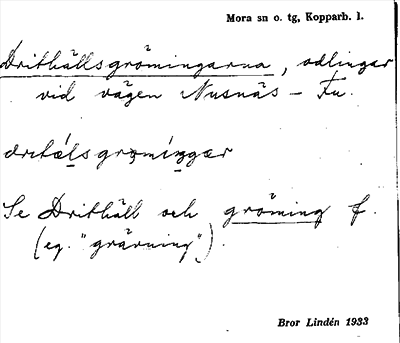 Mora sn o. tg, Kopparb. l.
Drithällsgrömingarna, odlingar
vid vägen Nusnäs – Fu.
dritälsgromiŋgær
Se Drithäll och gröming f.
(eg. "grävning").
Bror Lindén 1933